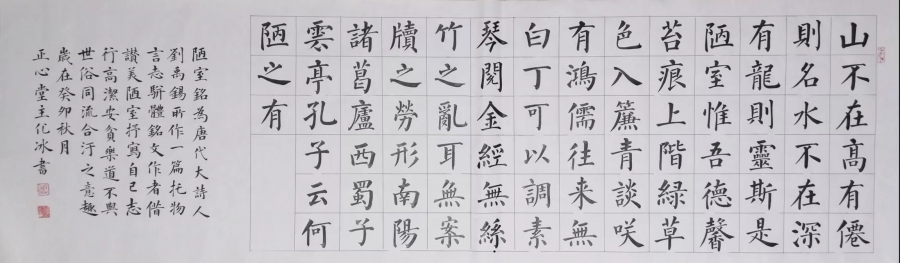 山不在高有僊
則名水不在深
有龍則靈斯是
陋室惟吾德馨
苔痕上階緑草
色入簾青談咲
有鴻儒往来無
白丁可以調素
琴閱金經無絲
竹之亂耳無案
牘之勞形南陽
諸葛廬西蜀子
雲亭孔子云何
陋之有
陋室銘為唐代大詩人
劉禹錫所作一篇托物
言志駢體銘文作者借
讚美陋室抒寫自己志
行高潔安貧樂道不與
世俗同流合汙之意趣
歲在癸卯秋月
正心堂主化冰書